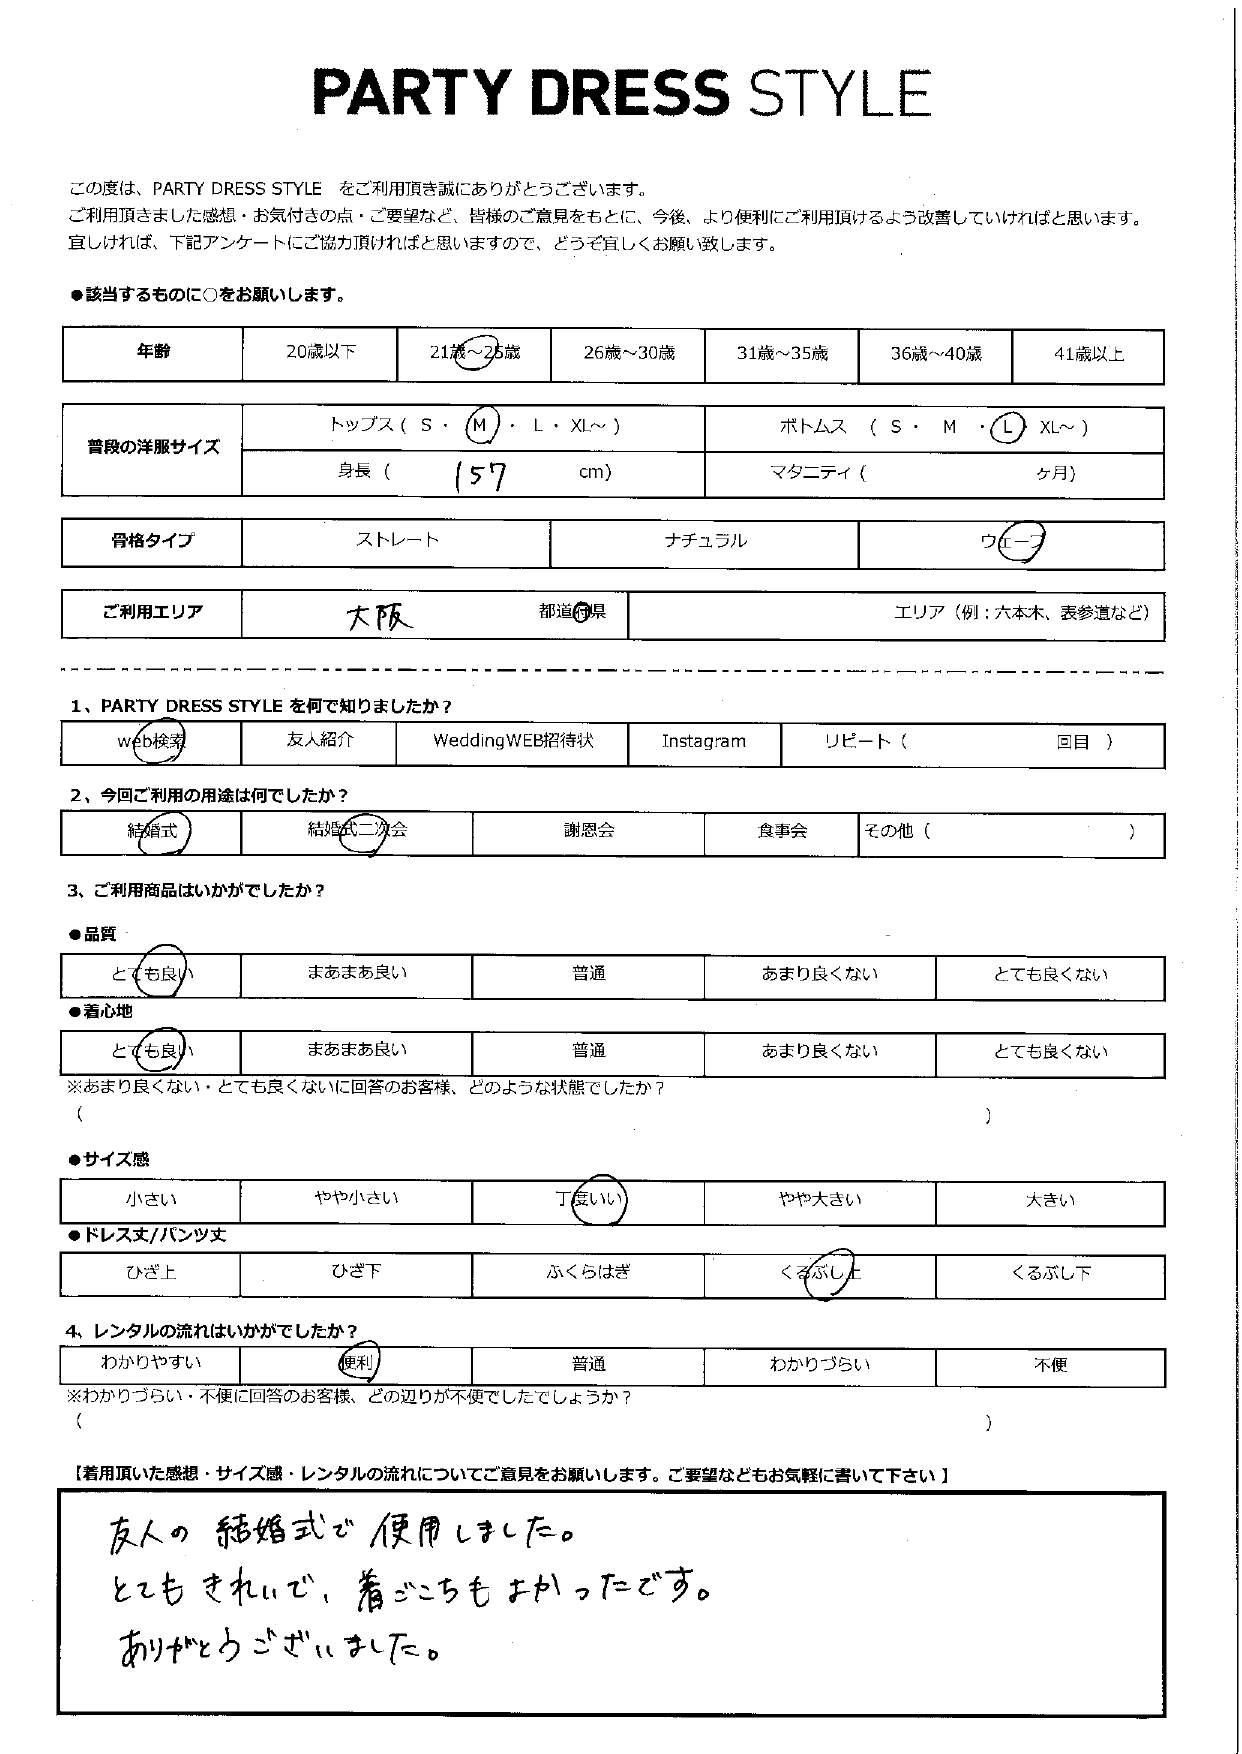 PARTY DRESS STYLE
この度は、PARTY DRESS STYLE をご利用頂き誠にありがとうございます。
ご利用頂きました感想・お気付きの点・ご要望など、皆様のご意見をもとに、今後、より便利にご利用頂けるよう改善していければと思います。
宜しければ、下記アンケートにご協力頂ければと思いますので、どうぞ宜しくお願い致します。
●該当するものに○をお願いします。
年齢 20歳以下 21歳～25歳 26歳～30歳 31歳～35歳 36歳～40歳 41歳以上
普段の洋服サイズ
トップス ( S ・ M ・ L ・ XL～ ) ボトムス ( S ・ M ・ L XL～ )
身長 ( 157 cm) マタニティ ( ヶ月)
骨格タイプ ストレート ナチュラル ウェーブ
ご利用エリア 大阪 都道府県 エリア（例：六本木、表参道など）
1、PARTY DRESS STYLE を何で知りましたか？
web検索 友人紹介 WeddingWEB招待状 Instagram リピート ( 回目 )
2、今回ご利用の用途は何でしたか？
結婚式 結婚式二次会 謝恩会 食事会 その他 ( )
3、ご利用商品はいかがでしたか？
●品質
とても良い まあまあ良い 普通 あまり良くない とても良くない
●着心地
とても良い まあまあ良い 普通 あまり良くない とても良くない
※あまり良くない・とても良くないに回答のお客様、どのような状態でしたか？
( )
●サイズ感
小さい やや小さい 丁度いい やや大きい 大きい
●ドレス丈/パンツ丈
ひざ上 ひざ下 ふくらはぎ くるぶし上 くるぶし下
4、レンタルの流れはいかがでしたか？
わかりやすい 便利 普通 わかりづらい 不便
※わかりづらい・不便に回答のお客様、どの辺りが不便でしたでしょうか？
( )
【着用頂いた感想・サイズ感・レンタルの流れについてご意見をお願いします。ご要望などもお気軽に書いて下さい】
友人の 結婚式で 使用しました。
とても きれいで、着ごこちも よかったです。
ありがとうございました。